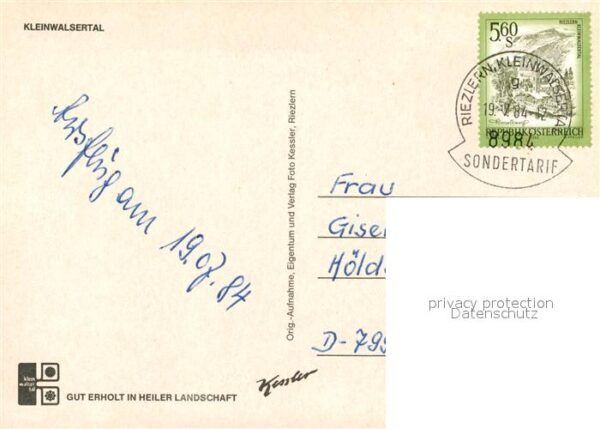 KLEINWALSERTAL
5,60
S
RIEZLERN
KLEINWALSERTAL
REPUBLIK ÖSTERREICH
RIEZLERN, KLEINWALSERTAL
19.
84-
8984
SONDERTARIF
Ausflug am 19.07.84
Orig.-Aufnahme, Eigentum und Verlag Foto Kessler, Riezlern
Frau
Gisel
Hölde
D-799
privacy protection
Datenschutz
klein
walser
tal
GUT ERHOLT IN HEILER LANDSCHAFT
Kessler